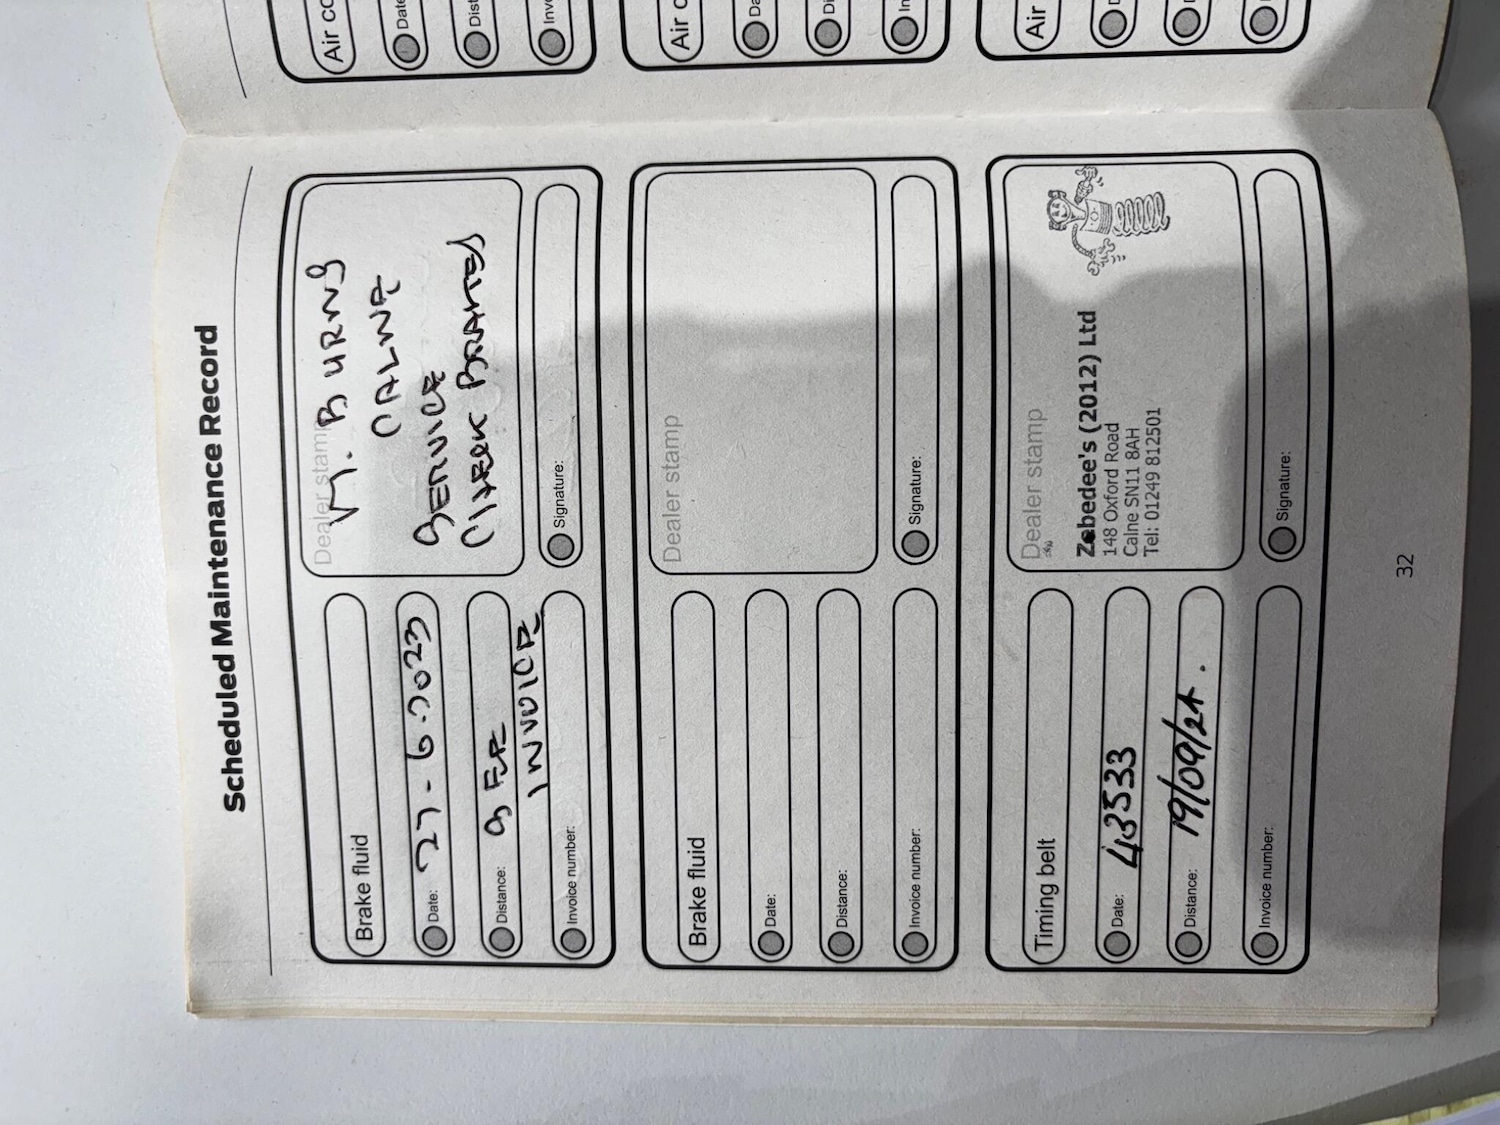 Scheduled Maintenance Record
Brake fluid
Date: 27-6-2023
Distance: SEE
INVOICE
Invoice number:
Dealer stamp
BURNS
CALNE
SERVICE
CHECK BRAKES
Signature:
Brake fluid
Date:
Distance:
Invoice number:
Dealer stamp
Signature:
Timing belt
Date: 43533
Distance: 19/09/24.
Invoice number:
Dealer stamp
Zebedee's (2012) Ltd
148 Oxford Road
Calne SN11 8AH
Tel: 01249 812501
Signature:
32